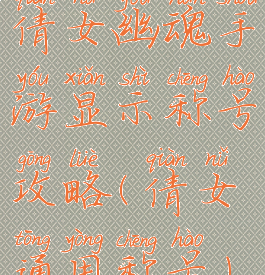 qiàn nǚ yōu hún shǒu
倩女幽魂手
yóu xiǎn shì chēng hào
游显示称号
gōng lüè qiàn nǚ
攻略(倩女
tōng yòng chēng hào
通用称号)